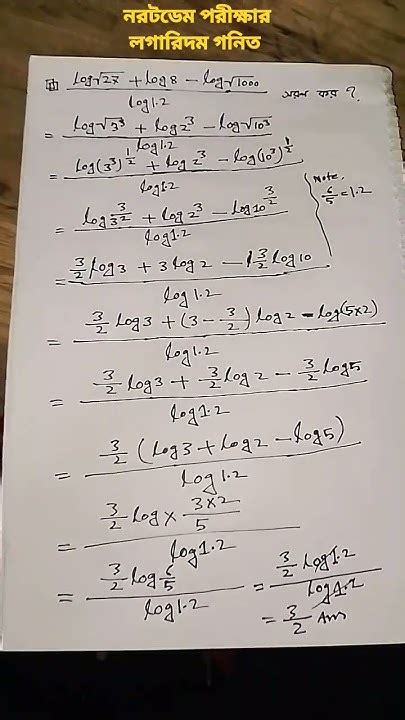 নরটডেম পরীক্ষার
লগারিদম গনিত
log√27 + log 8 - log√1000 / log 1.2 সরল কর ?
= log√3³ + log2³ - log√10³ / log1.2
= log(3³)^½ + log2³ - log(10³)^½ / log1.2
Note, 6/5 = 1.2
= log3^3/2 + log2³ - log10^3/2 / log1.2
= 3/2 log3 + 3log2 - 3/2 log10 / log1.2
= 3/2 log3 + (3 - 3/2) log2 - log(5×2) / log1.2
= 3/2 log3 + 3/2 log2 - 3/2 log5 / log1.2
= 3/2 (log3 + log2 - log5) / log1.2
= 3/2 log × 3×2/5 / log1.2
= 3/2 log 6/5 / log1.2 = 3/2 log1.2 / log1.2
= 3/2 Ans